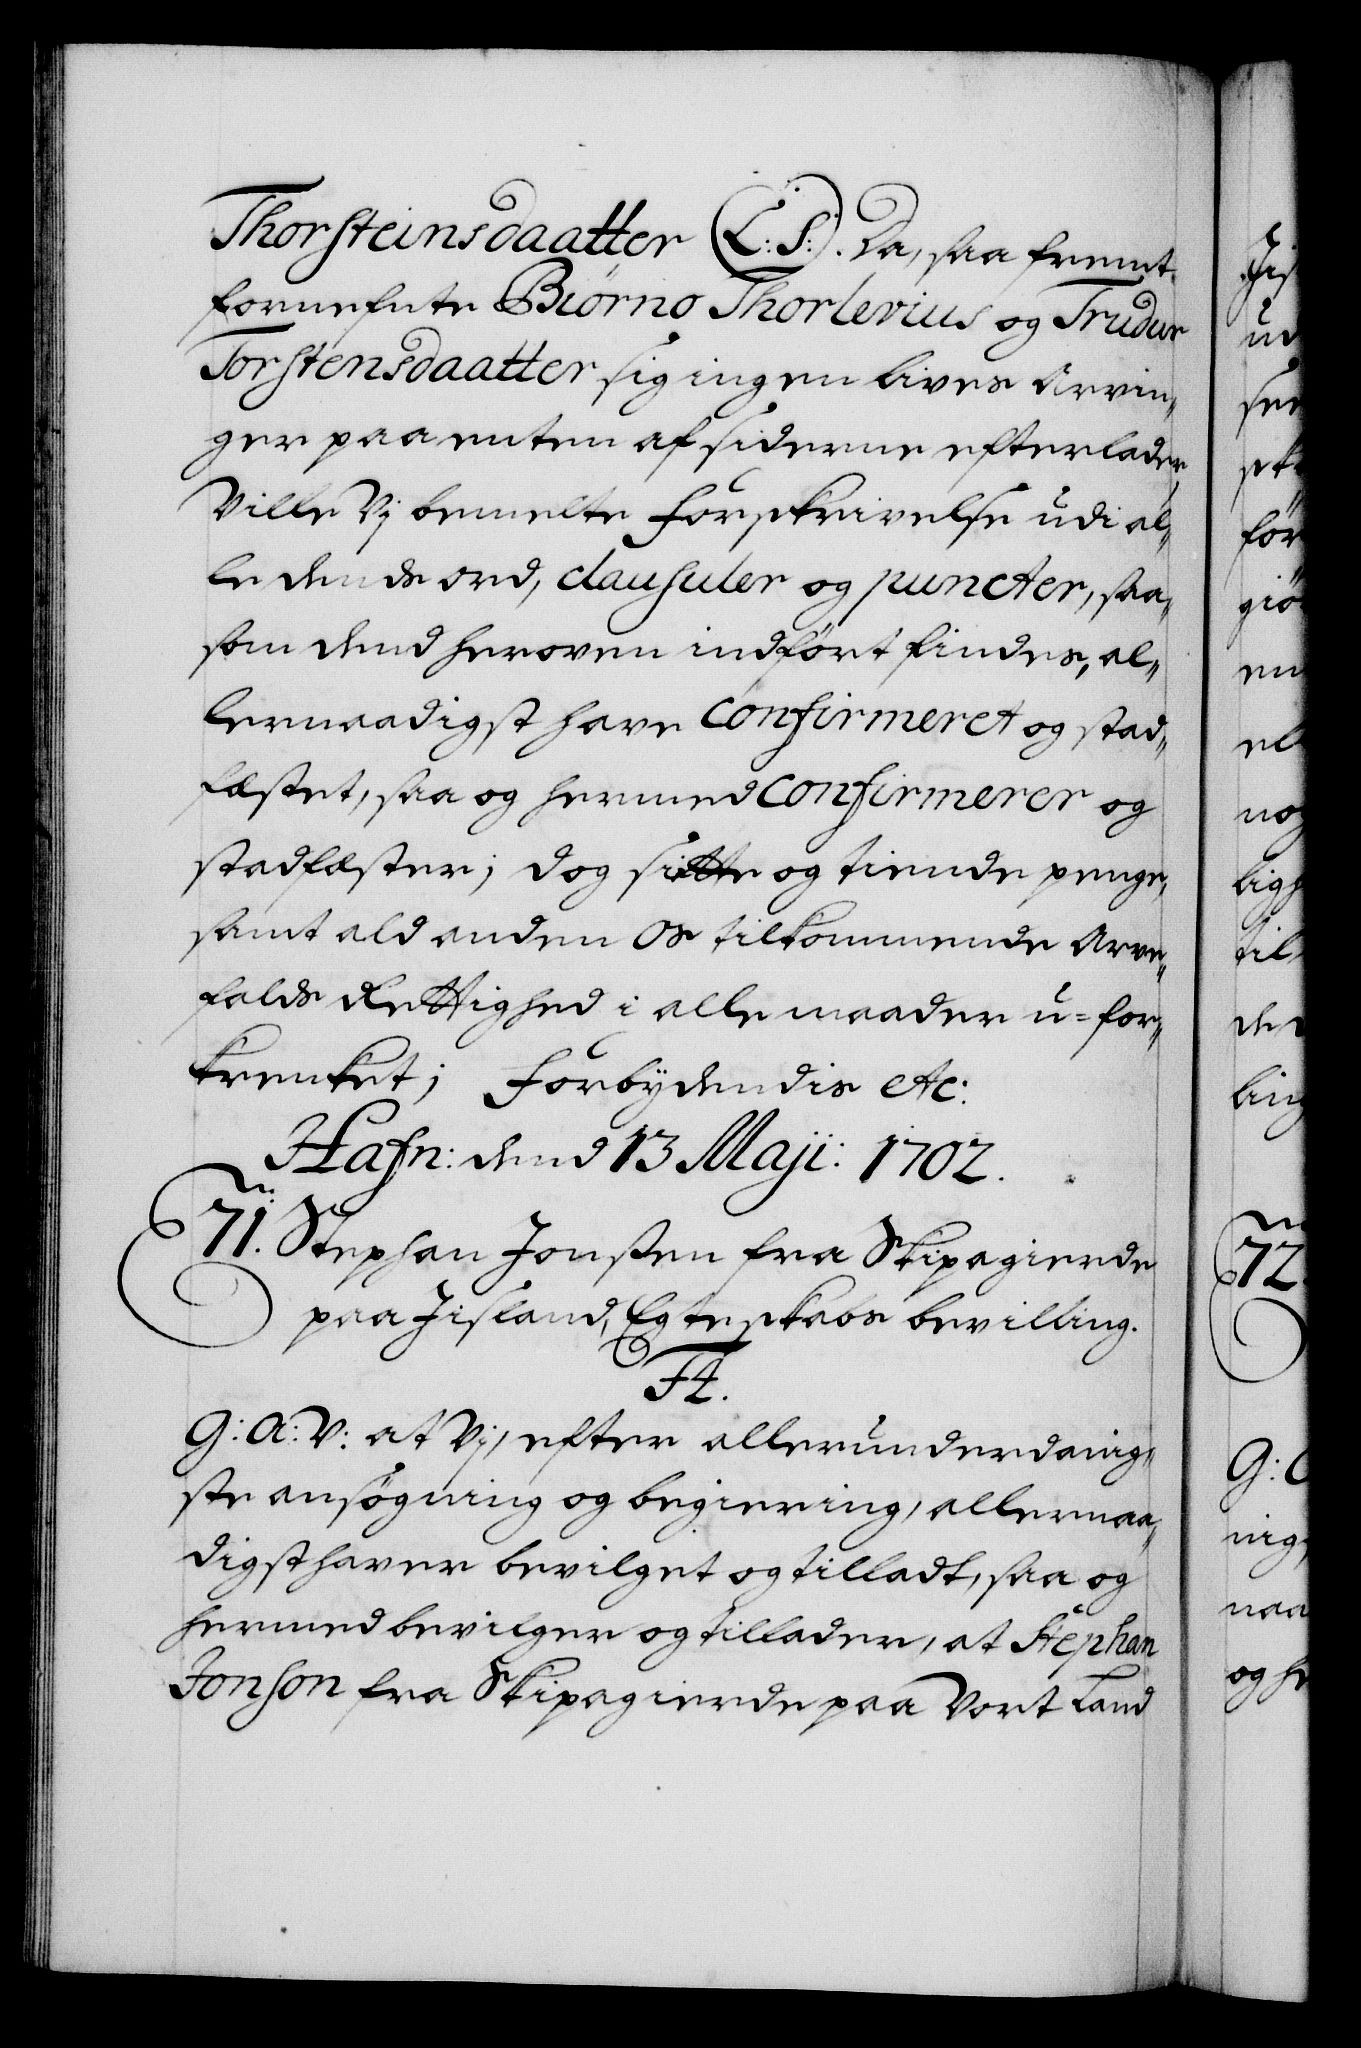 Thorsteinsdaatter (L: S:). Da, saa fremt
fornefnte Biörno Thorlevius og Trudur
Torstensdaatter sig ingen lives Arvin,,
ger paa enten af siderne efterlader,
Ville Vj bemelte forskrivelse udi al,,
le dends ord, clausuler og puncter, saa,,
som dend heroven indført findes, al,,
lernaadigst have confirmeret og stad,,
fæstet, saa og hermed confirmerer og
stadfæster; dog siette og tiende penge,
samt ald anden Os tilkommende Arve,,
falds Rettighed i alle maader u=for,,
krenket; Forbydendis etc:
Hafn: dend 13 Maji: 1702.
71. Stephan Jonssen fra Skipagierde
paa Jisland, Egteskabs bevilling.
F4.
G: A: V: at Vj, efter allerunderdanig,,
ste ansøgning og begiering, allernaa,,
digst haver bevilget og tilladt, saa og
hermed bevilger og tillader, at Stephan
Jonson fra Skipagierde paa Vort Land
Jis
ud
see
sk
for
giø
en
el
nog
ligh
til
de
ling
72.
G:
nig,
naa
og he